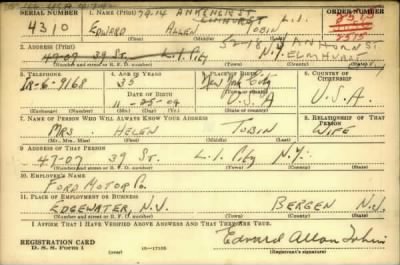 SERIAL NUMBER
1. NAME (Print)
ORDER NUMBER
4310
EDWARD ALLEN TOBIN
ELMHURST L.I.
(First) (Middle) (Last)
2. ADDRESS (Print)
47-07 39 St. L.I. City N.Y.
52-18
ELMHURST
(Number and street or R. F. D. number) (Town) (County) (State)
3. TELEPHONE
4. AGE IN YEARS
5. PLACE OF BIRTH
6. COUNTRY OF CITIZENSHIP
35
New York City
DATE OF BIRTH
Ir-6-9168
11-05-04
U.S.A
U.S.A.
(Exchange) (Number)
(Mo.) (Day) (Yr.)
(State or country)
7. NAME OF PERSON WHO WILL ALWAYS KNOW YOUR ADDRESS
8. RELATIONSHIP OF THAT PERSON
MRS. HELEN TOBIN WIFE
(Mr., Mrs., Miss) (First) (Middle) (Last)
9. ADDRESS OF THAT PERSON
47-07 39 St. L.I. City N.Y.
(Number and street or R. F. D. number) (Town) (County) (State)
10. EMPLOYER'S NAME
FORD MOTOR Co.
11. PLACE OF EMPLOYMENT OR BUSINESS
EDGEWATER, N.J. BERGEN N.J.
(Number and street or R. F. D. number) (Town) (County) (State)
I AFFIRM THAT I HAVE VERIFIED ABOVE ANSWERS AND THAT THEY ARE TRUE.
REGISTRATION CARD
D. S. S. Form 1
(over)
16-17105
Edward Allan Tobin
(Registrant's signature)